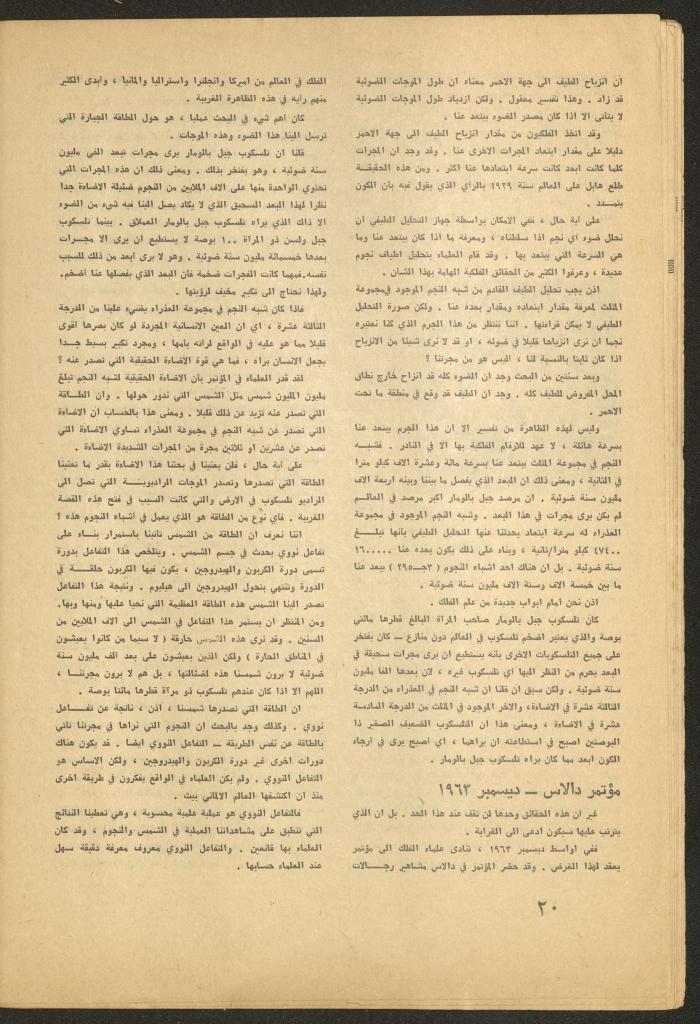 ان انزياح الطيف الى جهة الاحمر معناه ان طول الموجات الضوئية
قد زاد . وهذا تفسير معقول . ولكن ازدياد طول الموجات الضوئية
لا يتأتى الا اذا كان مصدر الضوء يبتعد عنا .
وقد اتخذ الفلكيون من مقدار انزياح الطيف الى جهة الاحمر
دليلا على مقدار ابتعاد المجرات الاخرى عنا . وقد وجد ان المجرات
كلما كانت ابعد كانت سرعة ابتعادها عنا اكثر . ومن هذه الحقيقة
طلع هابل على العالم سنة ١٩٢٩ بالرأي الذي يقول فيه بان الكون
يتمدد .
على اية حال ، ففي الامكان بواسطة جهاز التحليل الطيفي ان
نحلل ضوء اي نجم اذا سلطناه ، ومعرفة ما اذا كان يبتعد عنا وما
هي السرعة التي يبتعد بها . وقد قام العلماء بتحليل اطياف نجوم
عديدة ، وعرفوا الكثير من الحقائق الفلكية الهامة بهذا الشان .
اذن يجب تحليل الطيف القادم من شبه النجم الموجود في مجموعة
المثلث لمعرفة مقدار ابتعاده ومقدار بعده عنا . ولكن صورة التحليل
الطيفي لا يمكن قراءتها . اننا ننتظر من هذا الجرم الذي كنا نعتبره
نجما ان نرى انزياحا قليلا في ضوئه ، او قد لا نرى شيئا من الانزياح
اذا كان ثابتا بالنسبة لنا ، اليس هو من مجرتنا ؟
وبعد سنتين من البحث وجد ان الضوء كله قد انزاح خارج نطاق
المحل المفروض للطيف كله . وجد ان الطيف قد وقع في منطقة ما تحت
الاحمر .
وليس لهذه الظاهرة من تفسير الا ان هذا الجرم يبتعد عنا
بسرعة هائلة ، لا عهد للارقام الفلكية بها الا في النادر . فشبه
النجم في مجموعة المثلث يبتعد عنا بسرعة مائة وعشرة الاف كيلو مترا
في الثانية ، ومعنى ذلك ان البعد الذي يفصل ما بيننا وبينه اربعة الاف
مليون سنة ضوئية . ان مرصد جبل بالومار اكبر مرصد في العالم
لم يكن يرى مجرات في هذا البعد . وشبه النجم الموجود في مجموعة
العذراء له سرعة ابتعاد يحدثنا عنها التحليل الطيفي بأنها تبلغ
٤٧٤٠٠ كيلو متر/ثانية ، وبناء على ذلك يكون بعده عنا ١٦٠٠٠٠٠
سنة ضوئية . بل ان هناك احد اشباه النجوم ( ٣جـ٢٩٥ ) يبعد عنا
ما بين خمسة الاف وستة الاف مليون سنة ضوئية .
اذن نحن امام ابواب جديدة من علم الفلك .
كان تلسكوب جبل بالومار صاحب المرآة البالغ قطرها مائتي
بوصة والذي يعتبر اضخم تلسكوب في العالم دون منازع ــ كان يفتخر
على جميع التلسكوبات الاخرى بانه يستطيع ان يرى مجرات سحيقة في
البعد يحرم من النظر اليها اي تلسكوب غيره ، لان بعدها الفا مليون
سنة ضوئية . ولكن سبق ان قلنا ان شبه النجم في العذراء من الدرجة
الثالثة عشرة في الاضاءة، والاخر الموجود في المثلث من الدرجة السادسة
عشرة في الاضاءة ، ومعنى هذا ان التلسكوب الضعيف الصغير ذا
البوصتين اصبح في استطاعته ان يراهما ، اي اصبح يرى في ارجاء
الكون ابعد مما كان يراه تلسكوب جبل بالومار .
مؤتمر دالاس ــ ديسمبر ١٩٦٣
غير ان هذه الحقائق وحدها لن تقف عند هذا الحد . بل ان الذي
يترتب عليها سيكون ادعى الى الغرابة .
ففي اواسط ديسمبر ١٩٦٣ ، تنادى علماء الفلك الى مؤتمر
يعقد لهذا الغرض . وقد حضر المؤتمر في دالاس مشاهير رجالات
الفلك في العالم من اميركا وانجلترا واستراليا والمانيا ، وابدى الكثير
منهم رايه في هذه الظاهرة الغريبة .
كان اهم شيء في البحث عمليا ، هو حول الطاقة الجبارة التي
ترسل الينا هذا الضوء وهذه الموجات .
قلنا ان تلسكوب جبل بالومار يرى مجرات تبعد الفي مليون
سنة ضوئية ، وهو يفتخر بذلك . ومعنى ذلك ان هذه المجرات التي
تحتوي الواحدة منها على الاف الملايين من النجوم ضئيلة الاضاءة جدا
نظرا لهذا البعد السحيق الذي لا يكاد يصل الينا فيه شيء من الضوء
الا ذاك الذي يراه تلسكوب جبل بالومار العملاق . بينما تلسكوب
جبل ولسن ذو المرآة ١٠٠ بوصة لا يستطيع ان يرى الا مجرات
بعدها خمسمائة مليون سنة ضوئية . وهو لا يرى ابعد من ذلك للسبب
نفسه.فمهما كانت المجرات ضخمة فان البعد الذي يفصلها عنا اضخم.
ولهذا نحتاج الى تكبير مخيف لرؤيتها .
فاذا كان شبه النجم في مجموعة العذراء يضيء علينا من الدرجة
الثالثة عشرة ، اي ان العين الانسانية المجردة لو كان بصرها اقوى
قليلا مما هو عليه في الواقع لراته بامها ، ومجرد تكبير بسيط جدا
يجعل الانسان يراه ، فما هي قوة الاضاءة الحقيقية التي تصدر عنه ؟
لقد قدر العلماء في المؤتمر بان الاضاءة الحقيقية لشبه النجم تبلغ
مليون المليون شمس مثل الشمس التي ندور حولها . وان الطاقة
التي تصدر عنه تزيد عن ذلك قليلا . ومعنى هذا بالحساب ان الاضاءة
التي تصدر عن شبه النجم في مجموعة العذراء تساوي الاضاءة التي
تصدر عن عشرين او ثلاثين مجرة من المجرات الشديدة الاضاءة .
على أية حال ، فلن يعنينا في بحثنا هذا الاضاءة بقدر ما تعنينا
الطاقة التي تصدرها وتصدر الموجات الراديوية التي تصل الى
الراديو تلسكوب في الارض والتي كانت السبب في فتح هذه القصة
الغريبة . فأي نوع من الطاقة هو الذي يعمل في أشباه النجوم هذه ؟
اننا نعرف ان الطاقة من الشمس تاتينا باستمرار بناء على
تفاعل نووي يحدث في جسم الشمس . ويتلخص هذا التفاعل بدورة
تسمى دورة الكربون والهيدروجين ، يكون فيها الكربون حلقة في
الدورة وتنتهي بتحول الهيدروجين الى هيليوم . ونتيجة هذا التفاعل
تصدر الينا الشمس هذه الطاقة العظيمة التي نحيا عليها ومنها وبها.
ومن المنتظر ان يستمر هذا التفاعل في الشمس الى الاف الملايين من
السنين . وقد نرى هذه الشمس حارقة ( لا سيما من كانوا يعيشون
في المناطق الحارة ) ولكن الذين يعيشون على بعد الف مليون سنة
ضوئية لا يرون شمسنا هذه لضئالتها ، بل هم لا يرون مجرتنا ،
اللهم الا اذا كان عندهم تلسكوب ذو مرآة قطرها مائتا بوصة .
ان الطاقة التي تصدرها شمسنا ، اذن ، ناتجة عن تفاعل
نووي . وكذلك وجد بالبحث ان النجوم التي نراها في مجرتنا تأتي
بالطاقة عن نفس الطريقة ــ التفاعل النووي ايضا . قد يكون هناك
دورات اخرى غير دورة الكربون والهيدروجين ، ولكن الاساس هو
التفاعل النووي . ولم يكن العلماء في الواقع يفكرون في طريقة اخرى
منذ ان اكتشفها العالم الالماني بيث .
فالتفاعل النووي هو عملية علمية محسوبة ، وهي تعطينا النتائج
التي تنطبق على مشاهداتنا العملية في الشمس والنجوم ، وقد كان
العلماء بها قانعين . والتفاعل النووي معروف معرفة دقيقة سهل
عند العلماء حسابها .
٢٠